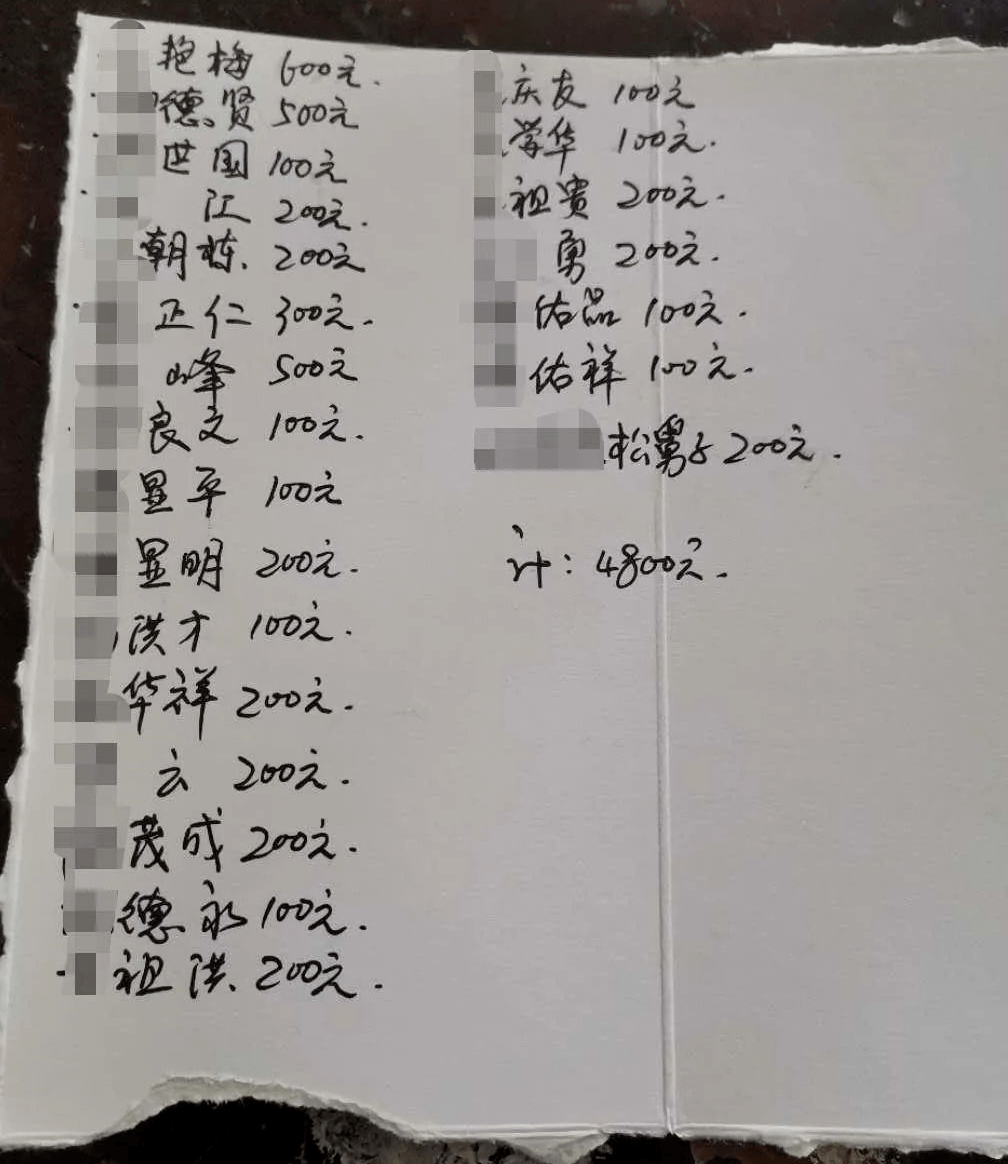 艳梅 600元.
德贤 500元
世国 100元
江 200元.
朝栋. 200元
正仁 300元.
峰 500元
良文 100元.
显平 100元
显明 200元.
洪才 100元.
华祥 200元.
云 200元.
茂成 200元.
德永 100元.
祖洪. 200元.
庆友 100元
学华 100元.
祖贵 200元.
勇 200元.
佑品 100元.
佑祥 100元.
松舅子 200元.
计: 4800元.